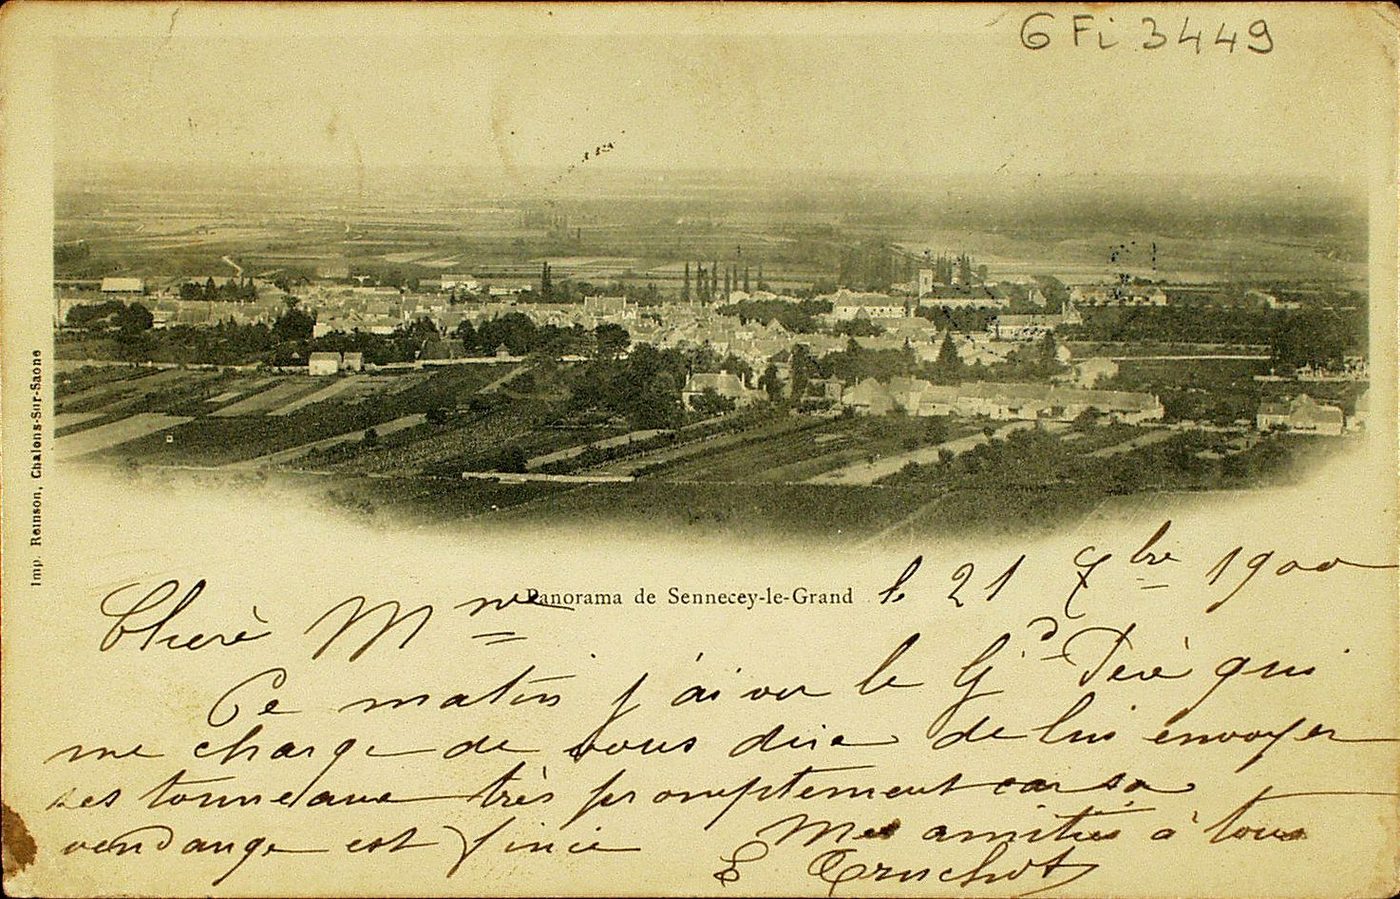 6 Fi 3449
Imp. Reinson, Chalons-Sur-Saone
Panorama de Sennecey-le-Grand
le 21 7bre 1900
Chere Mme
Ce matin j'ai vu le Gd Père qui
me charge de vous dire de lui envoyer
ses tonneaux très promptement car sa
vendange est finie
Mes amitiés à tous
Truchot